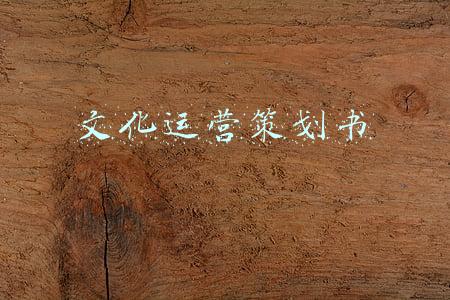 文化运营策划书